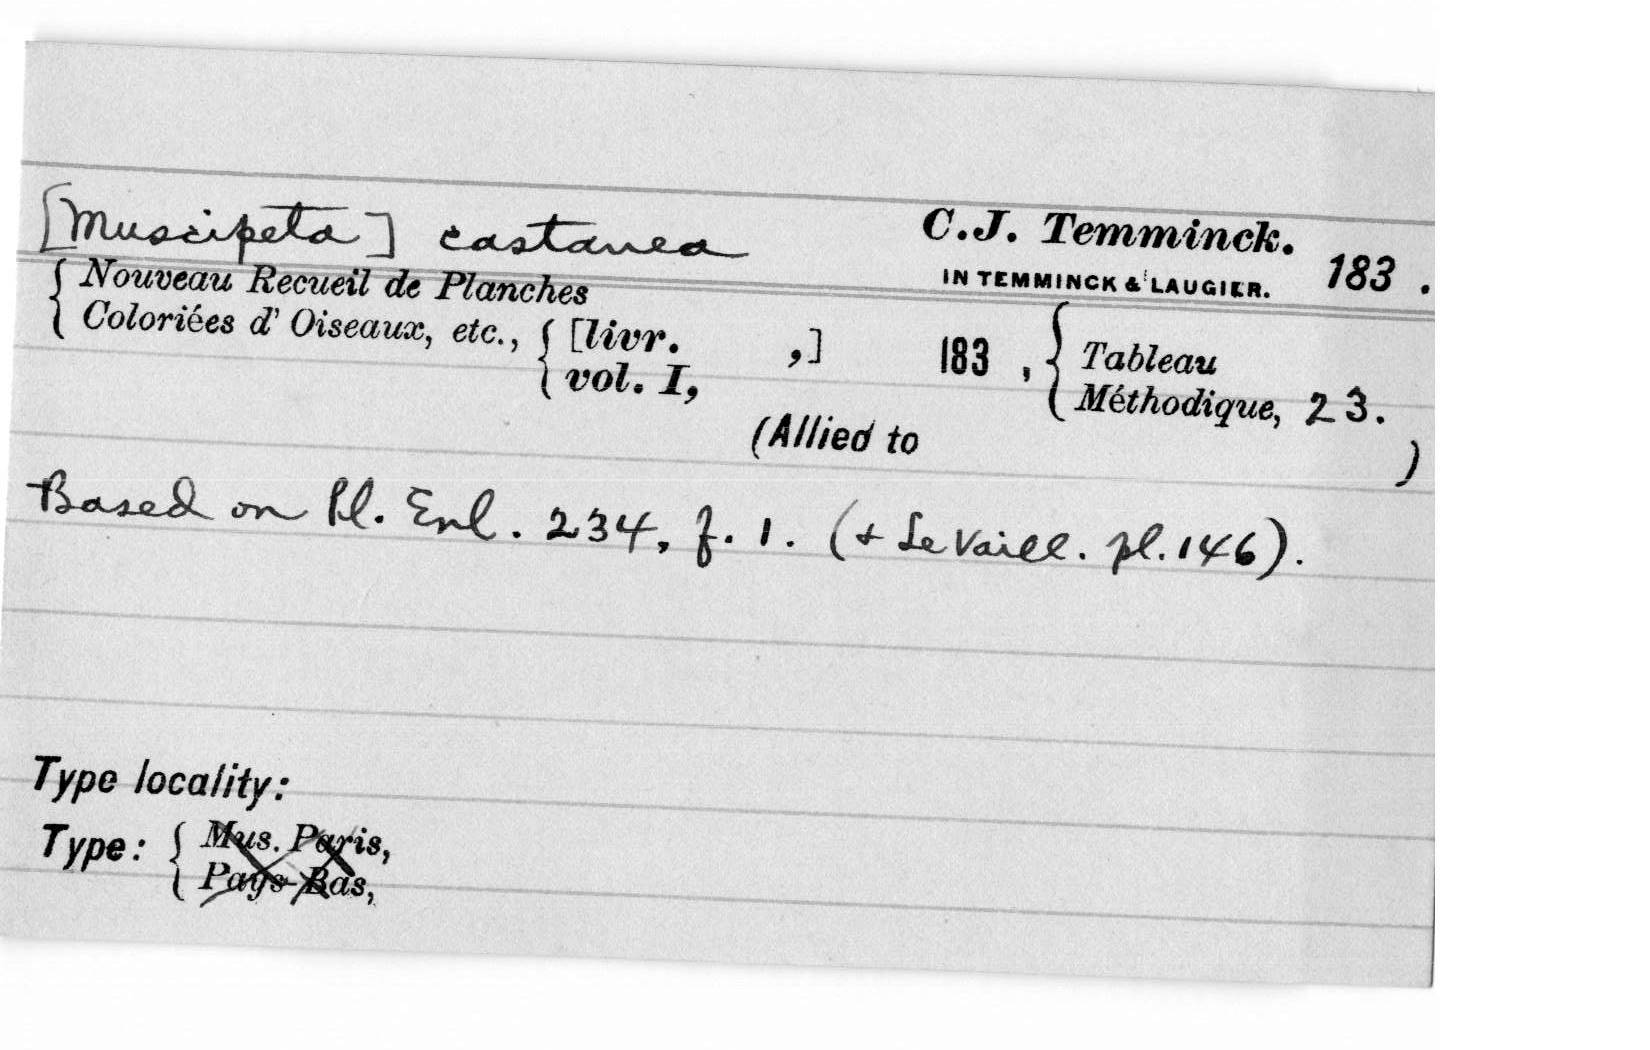 [Muscipeta] castanea C.J. Temminck.
IN TEMMINCK & LAUGIER. 183 .
{ Nouveau Recueil de Planches
Coloriées d' Oiseaux, etc., { [livr. ,] 183 , { Tableau
vol. I, Méthodique, 23.
(Allied to )
Based on Pl. Enl. 234, f. 1. (+ Le Vaill. pl. 146).
Type locality:
Type: { Mus. Paris,
Pays-Bas,